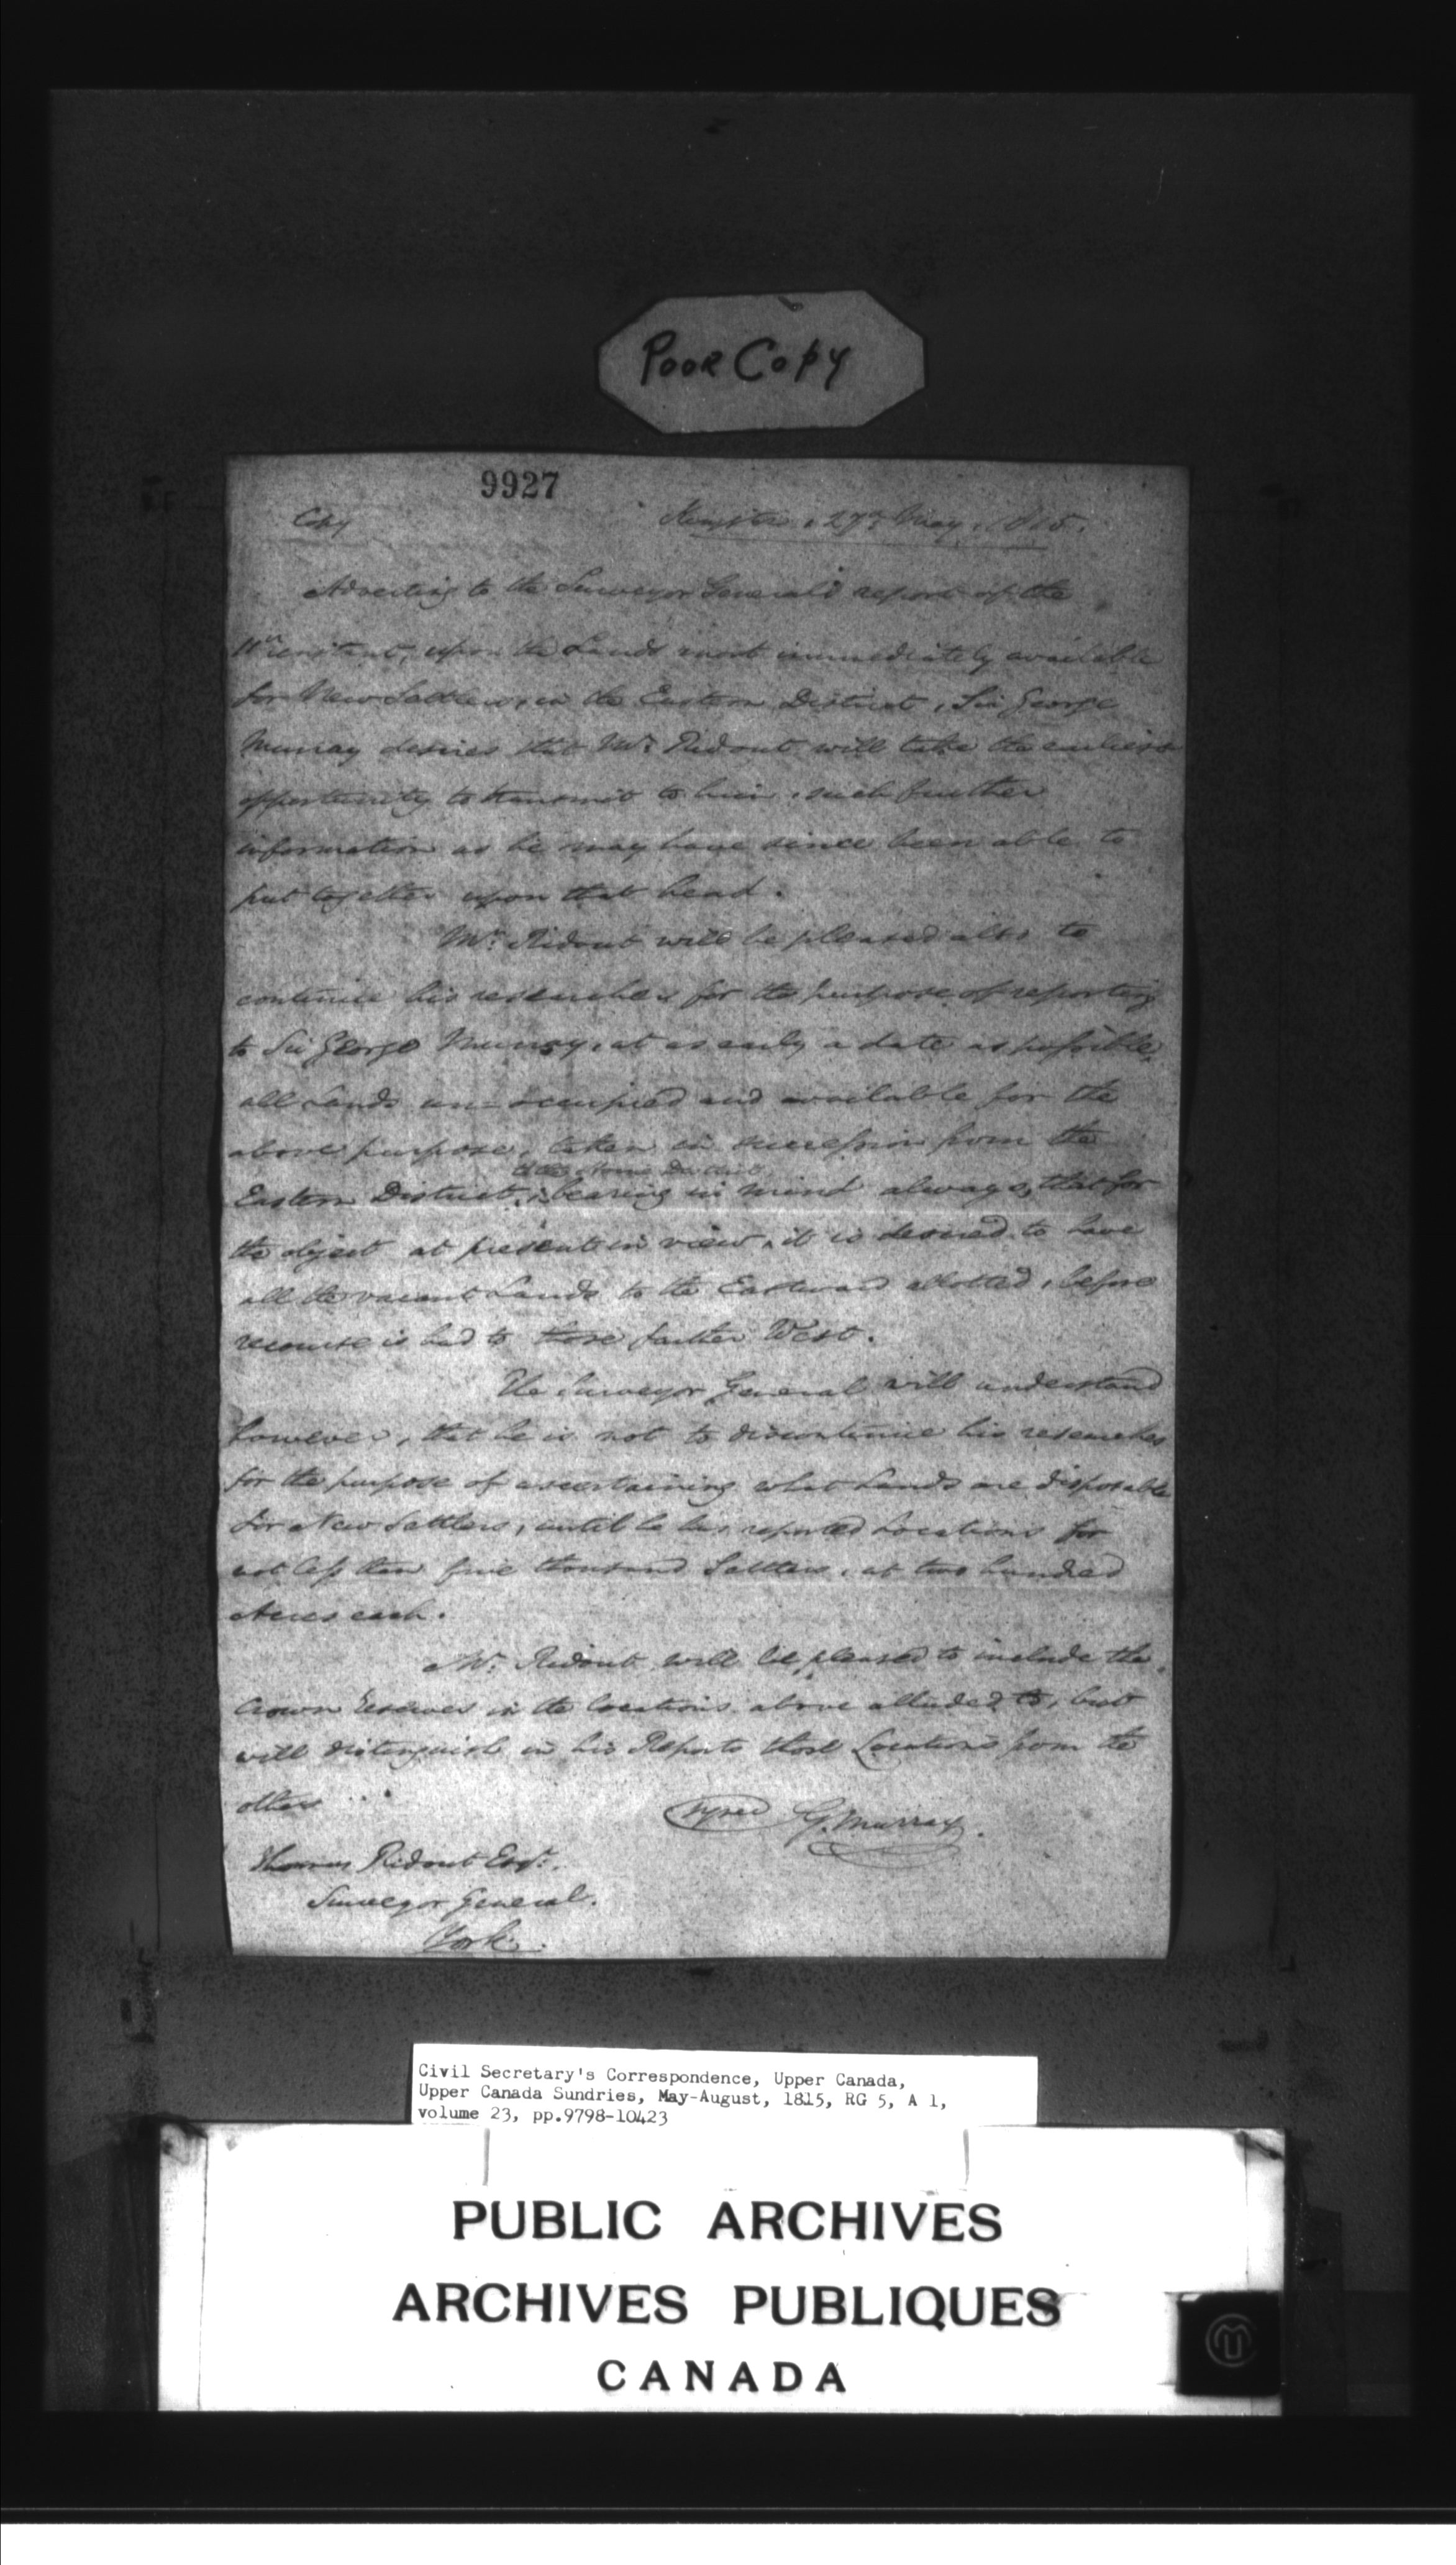 Poor Copy
9927
Copy
Kingston, 27th May, 1815.
Adverting to the Surveyor General's report of the
instant, upon the Lands most immediately available
for New Settlers, in the Eastern District, Sir George
Murray desires that Mr. Ridout will take the earliest
opportunity to transmit to him, such further
information as he may have since been able to
put together upon that head.
Mr. Ridout will be pleased also to
continue his researches for the purpose of reporting
to Sir George Murray, at as early a date as possible,
all Lands un-occupied and available for the
above purpose, taken in succession from the
to the Home District,
Eastern District, bearing in mind always, that for
the object at present in view, it is desired to have
all the vacant Lands to the Eastward allotted, before
recourse is had to those farther West.
The Surveyor General will understand
however, that he is not to discontinue his researches
for the purpose of ascertaining what Lands are disposable
for New Settlers, until he has reported Locations for
not less than five thousand Settlers, at two hundred
Acres each.
Mr. Ridout will be pleased to include the
Crown Reserves in the locations above alluded to, but
will distinguish in his Reports those Locations from the
others.
Signed G. Murray.
Thomas Ridout Esqr.
Surveyor General.
York.
Civil Secretary's Correspondence, Upper Canada,
Upper Canada Sundries, May-August, 1815, RG 5, A 1,
volume 23, pp.9798-10423
PUBLIC ARCHIVES
ARCHIVES PUBLIQUES
CANADA